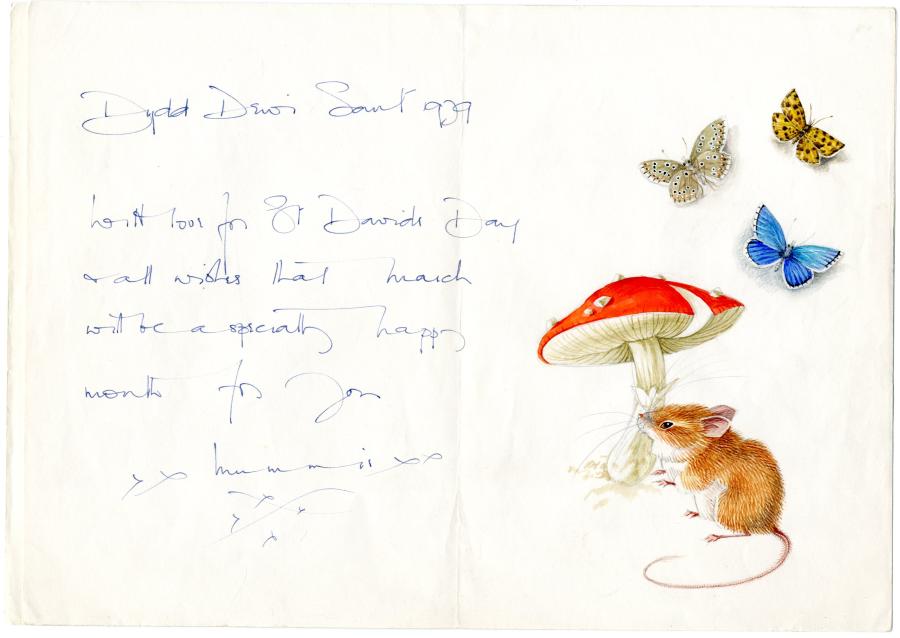 Dydd Dewi Sant 1979
with love for St Davids Day
& all wishes that march
will be a specially happy
month for you
xx mummie xx
x x
x x